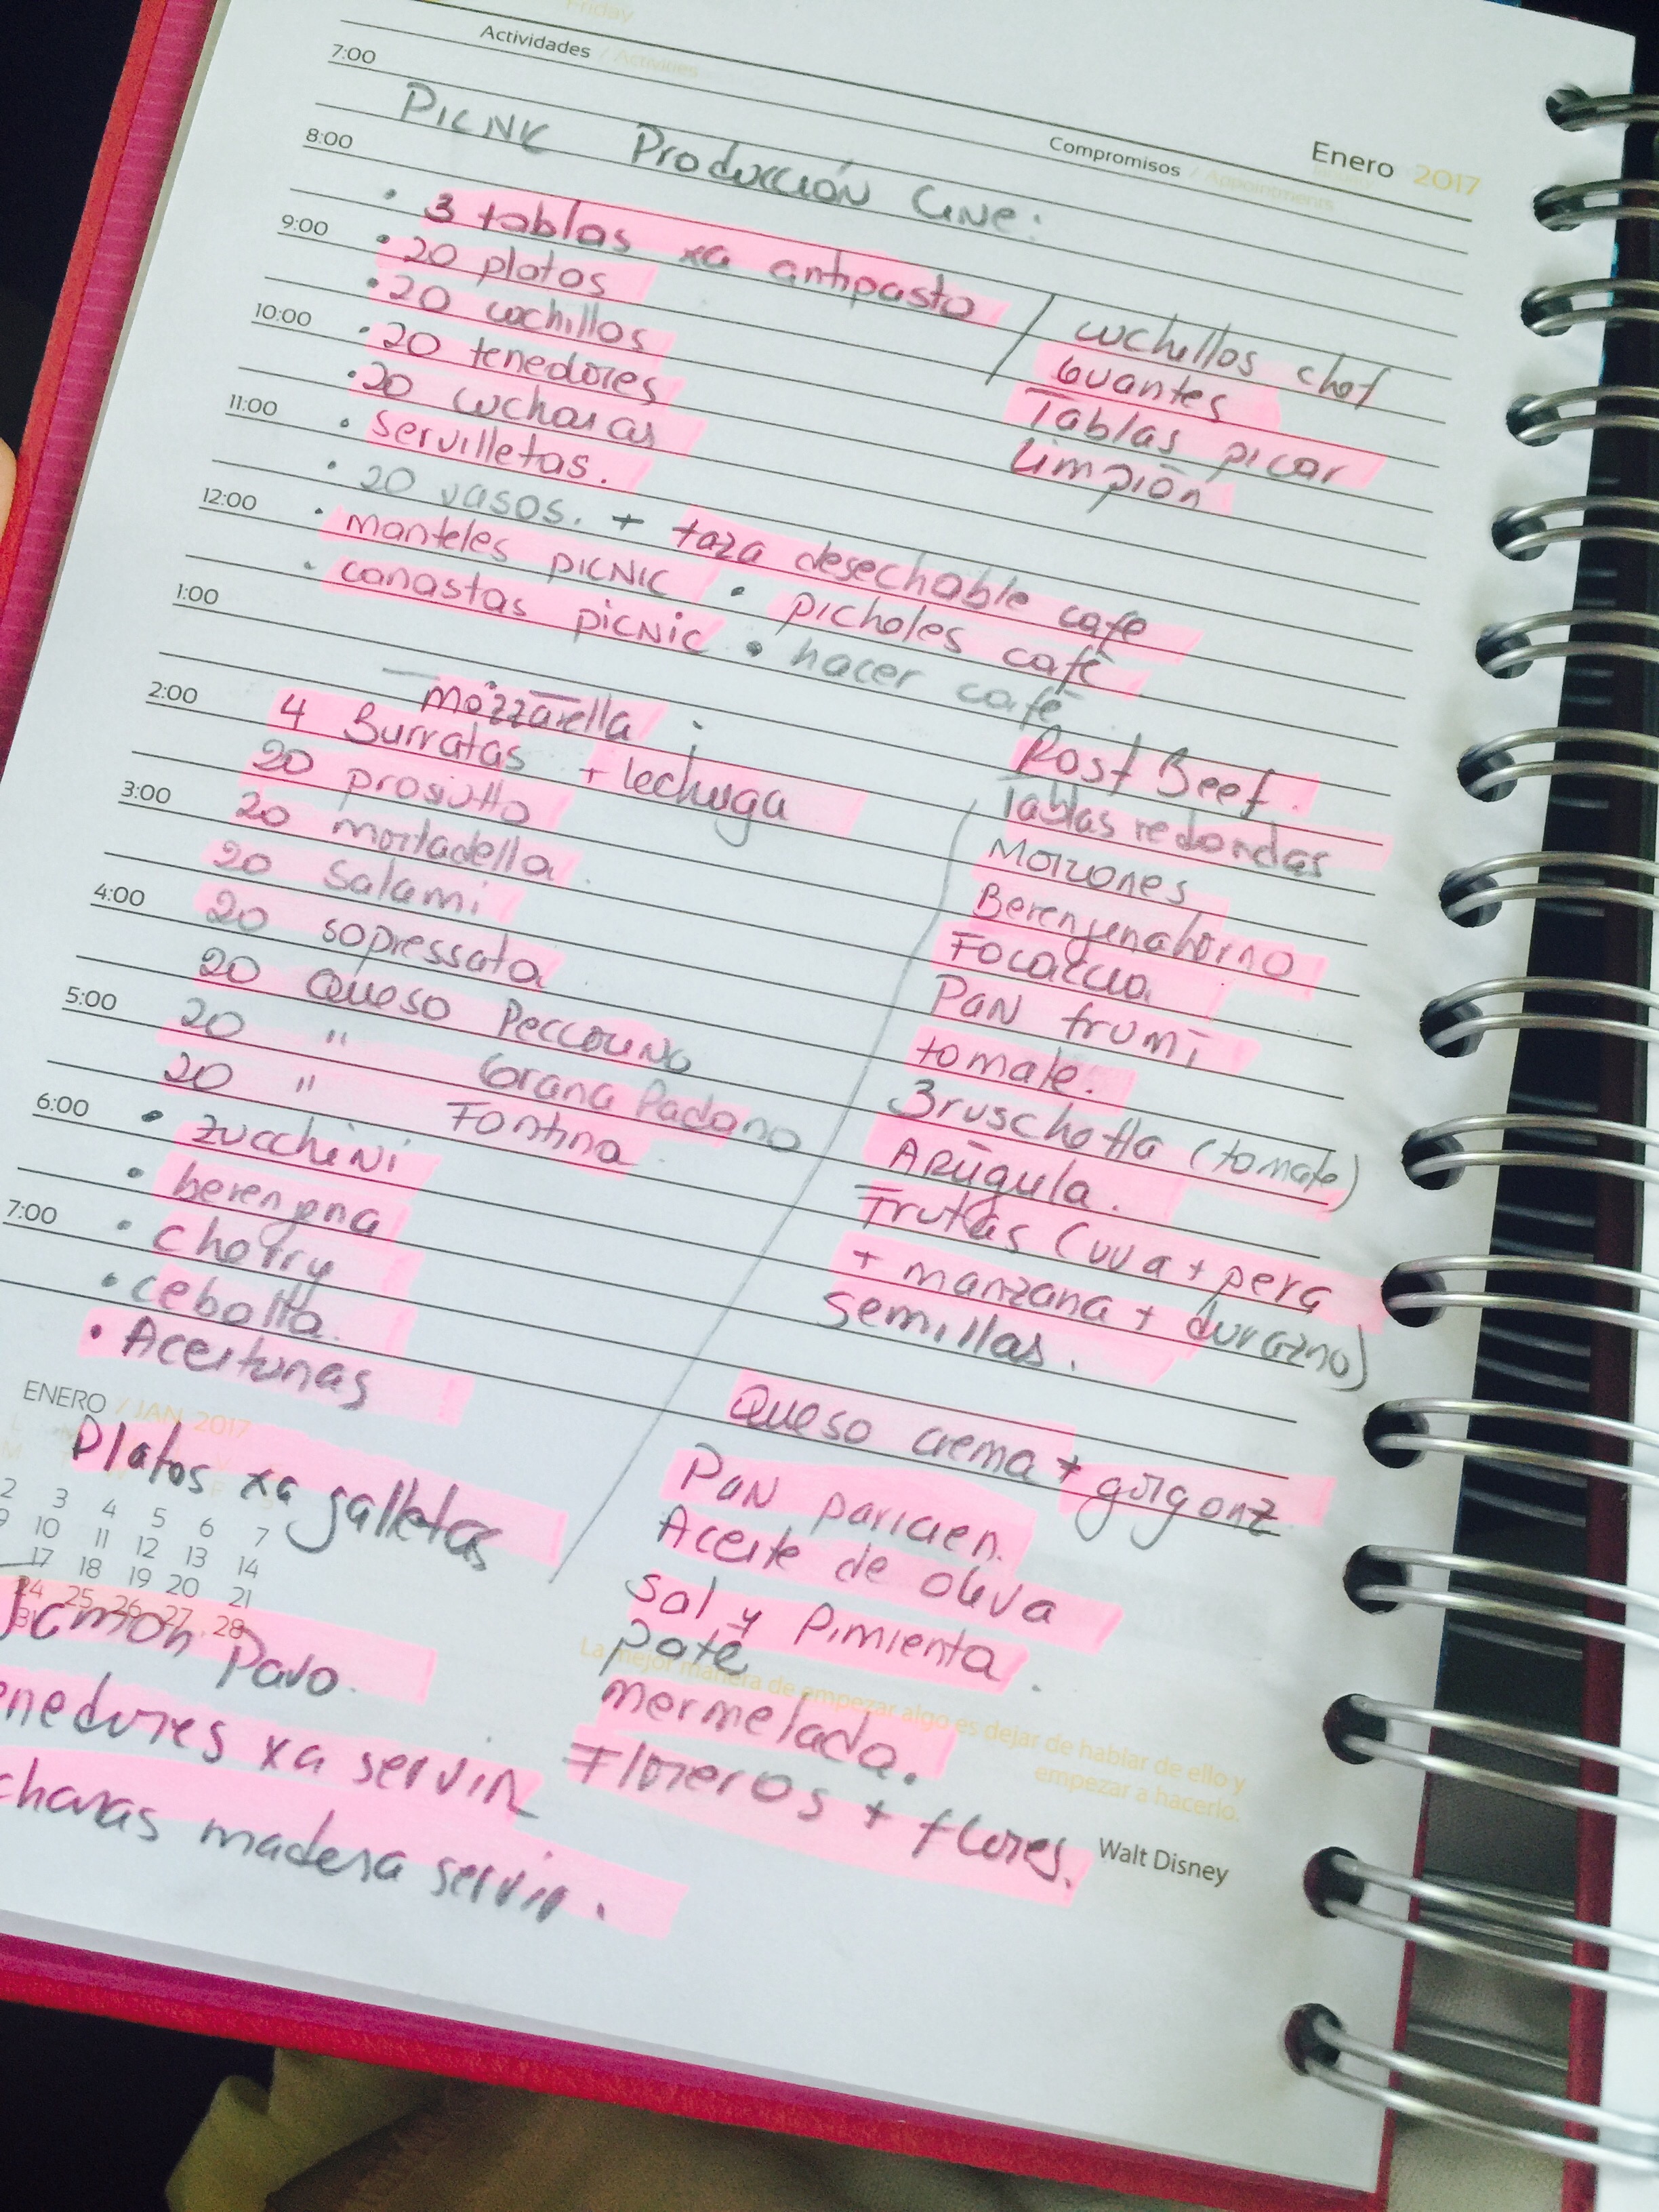 Friday
Actividades / Activities
Compromisos / Appointments
Enero 2017
7:00
PICNIC Producción Cine:
8:00
• 3 tablas xa antipasto
9:00
• 20 platos
• 20 cuchillos
10:00
• 20 tenedores
• 20 cucharas
11:00
• servilletas.
• 20 vasos. + taza desechable cafe
12:00
• manteles PICNIC • picheles café
• canastas picnic • hacer café
1:00
cuchillos chef
Guantes
Tablas picar
Limpión
mozzarella
2:00
4 Burratas + lechuga
20 prosiutto
3:00
20 mortadella.
20 salami
4:00
20 sopressata
20 Queso Peccorino
5:00
20 " Grana Padano
20 " Fontina
6:00
• zucchini
• berenjena
7:00
• cherry
• cebolla.
• Aceitunas
Platos xa galletas
Jamon Pavo.
enedores xa servir
charas madera servir.
Rost Beef.
Tablas redondas
Morrones
Berenjena horno
Focaccia
PAN frumi
tomate.
Bruschetta (tomate)
Arúgula.
Frutas (uva + pera
+ manzana + durazno)
semillas.
Queso crema + gorgonz
PAN paricien.
Aceite de oliva
sal y Pimienta.
paté
mermelada.
Floreros + flores.
ENERO / JAN 2017
2 3 4 5 6 7
9 10 11 12 13 14
17 18 19 20 21
24 25 26 27 28
31
La mejor manera de empezar algo es dejar de hablar de ello y
empezar a hacerlo.
Walt Disney